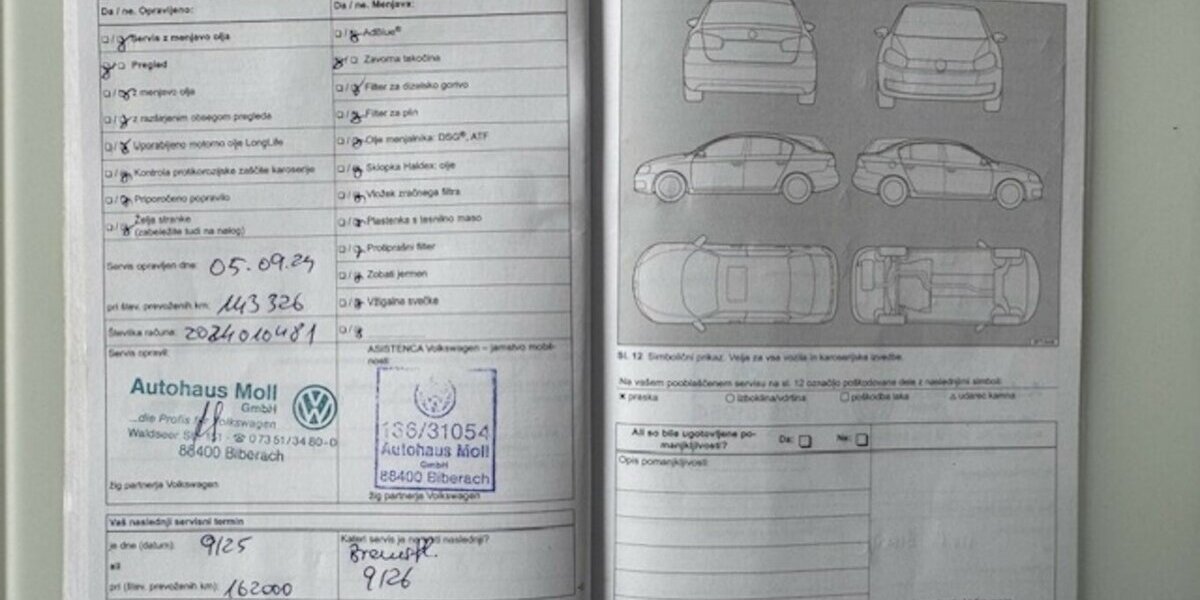 Da / ne. Opravljeno:
Servis z menjavo olja
Pregled
z menjavo olja
z razširjenim obsegom pregleda
Uporabljeno motorno olje LongLife
Kontrola protikorozijske zaščite karoserije
Priporočeno popravilo
Želja stranke
(zabeležite tudi na nalog)
Servis opravljen dne: 05.09.24
pri štev. prevoženih km: 143 326
Številka računa: 2024010481
Servis opravil:
Autohaus Moll
GmbH
...die Profis für Volkswagen
Waldseer Str. 151 · ☎ 0 73 51/34 80-0
88400 Biberach
žig partnerja Volkswagen
Da / ne. Menjava:
AdBlue®
Zavorna tekočina
Filter za dizelsko gorivo
Filter za plin
Olje menjalnika: DSG®, ATF
Sklopka Haldex: olje
Vložek zračnega filtra
Plastenka s tesnilno maso
Protiprašni filter
Zobati jermen
Vžigalne svečke
ASISTENCA Volkswagen – jamstvo mobil-
nosti:
136/31054
Autohaus Moll
GmbH
88400 Biberach
žig partnerja Volkswagen
Vaš naslednji servisni termin
je dne (datum): 9/25
ali
pri (štev. prevoženih km): 162000
Kateri servis je naslednji?
Bremsfl.
9/26
Sl. 12 Simbolični prikaz. Velja za vsa vozila in karoserijske izvedbe.
Na vašem pooblaščenem servisu na sl. 12 označijo poškodovane dele z naslednjimi simboli:
× praska ○ izboklina/vdrtina □ poškodba laka △ udarec kamna
Ali so bile ugotovljene po-
manjkljivosti? Da: Ne:
Opis pomanjkljivosti: